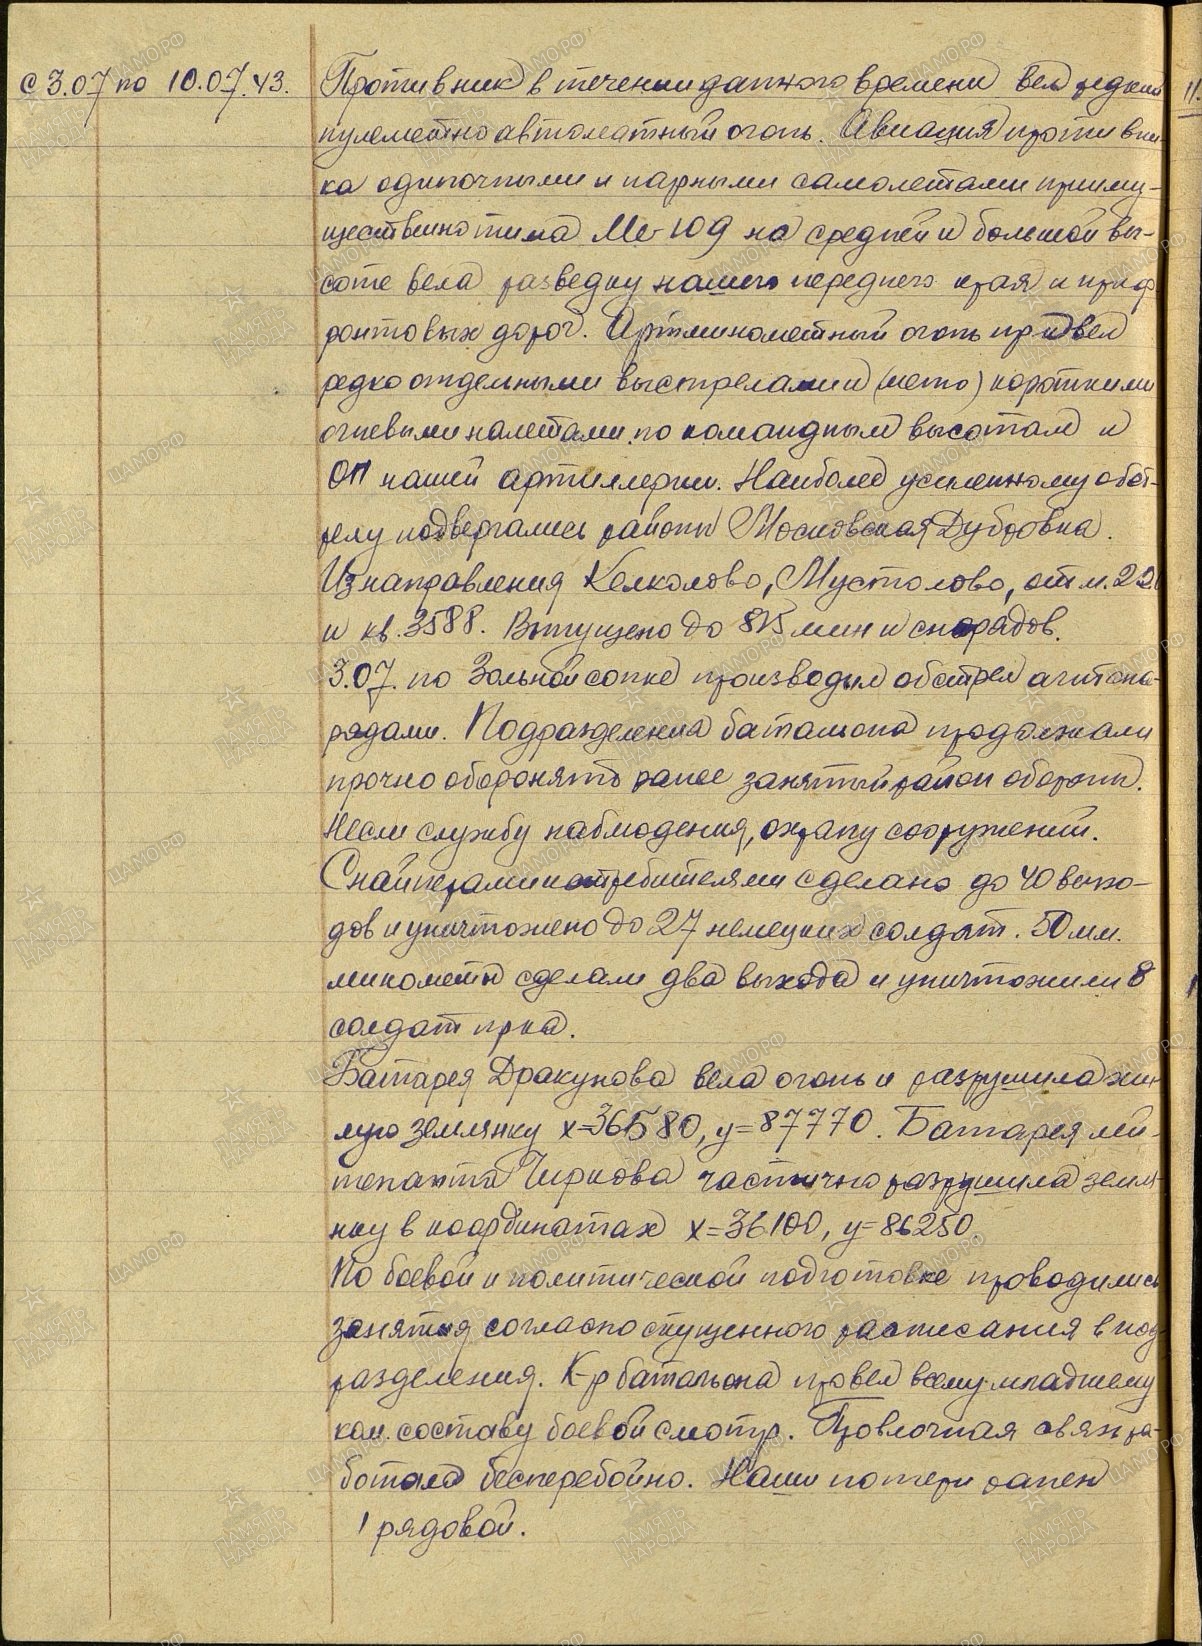 с 3.07 по 10.07.43. Противник в течении данного времени вел редкий
пулеметно автоматный огонь. Авиация противни-
ка одиночными и парными самолетами приему-
щественно типа Ме-109 на средней и большой вы-
соте вела разведку нашего переднего края и приф
ронтовых дорог. Артминометный огонь пр-к вел
редко отдельными выстрелами и (мето) короткими
огневыми налетами по командным высотам и
ОП нашей артиллерии. Наиболее усиленному обст-
релу подвергались районы Московская Дубровка.
Из направления Келколово, Мустолово, отм. 22.
и кв. 3588. Выпущено до 815 мин и снарядов.
3.07. по Зольной сопке производил обстрел агитсна-
рядами. Подразделения батальона продолжали
прочно оборонять ранее занятый район обороны.
Несли службу наблюдения, охрану сооружений.
Снайперами истребителями сделано до 40 выхо-
дов и уничтожено до 27 немецких солдат. 50 мм.
минометы сделали два выхода и уничтожили 8
солдат пр-ка.
Батарея Дракунова вела огонь и разрушила жи-
лую землянку х=36580, у=87770. Батарея лей-
тенанта Чиркова частично разрушила земля-
нку в координатах х=36100, у=86250.
По боевой и политической подготовке проводились
занятия согласно спущенного расписания в под
разделения. К-р батальона провел всему младшему
ком. составу боевой смотр. Проволочная связь ра-
ботала бесперебойно. Наши потери ранен
1 рядовой.
11